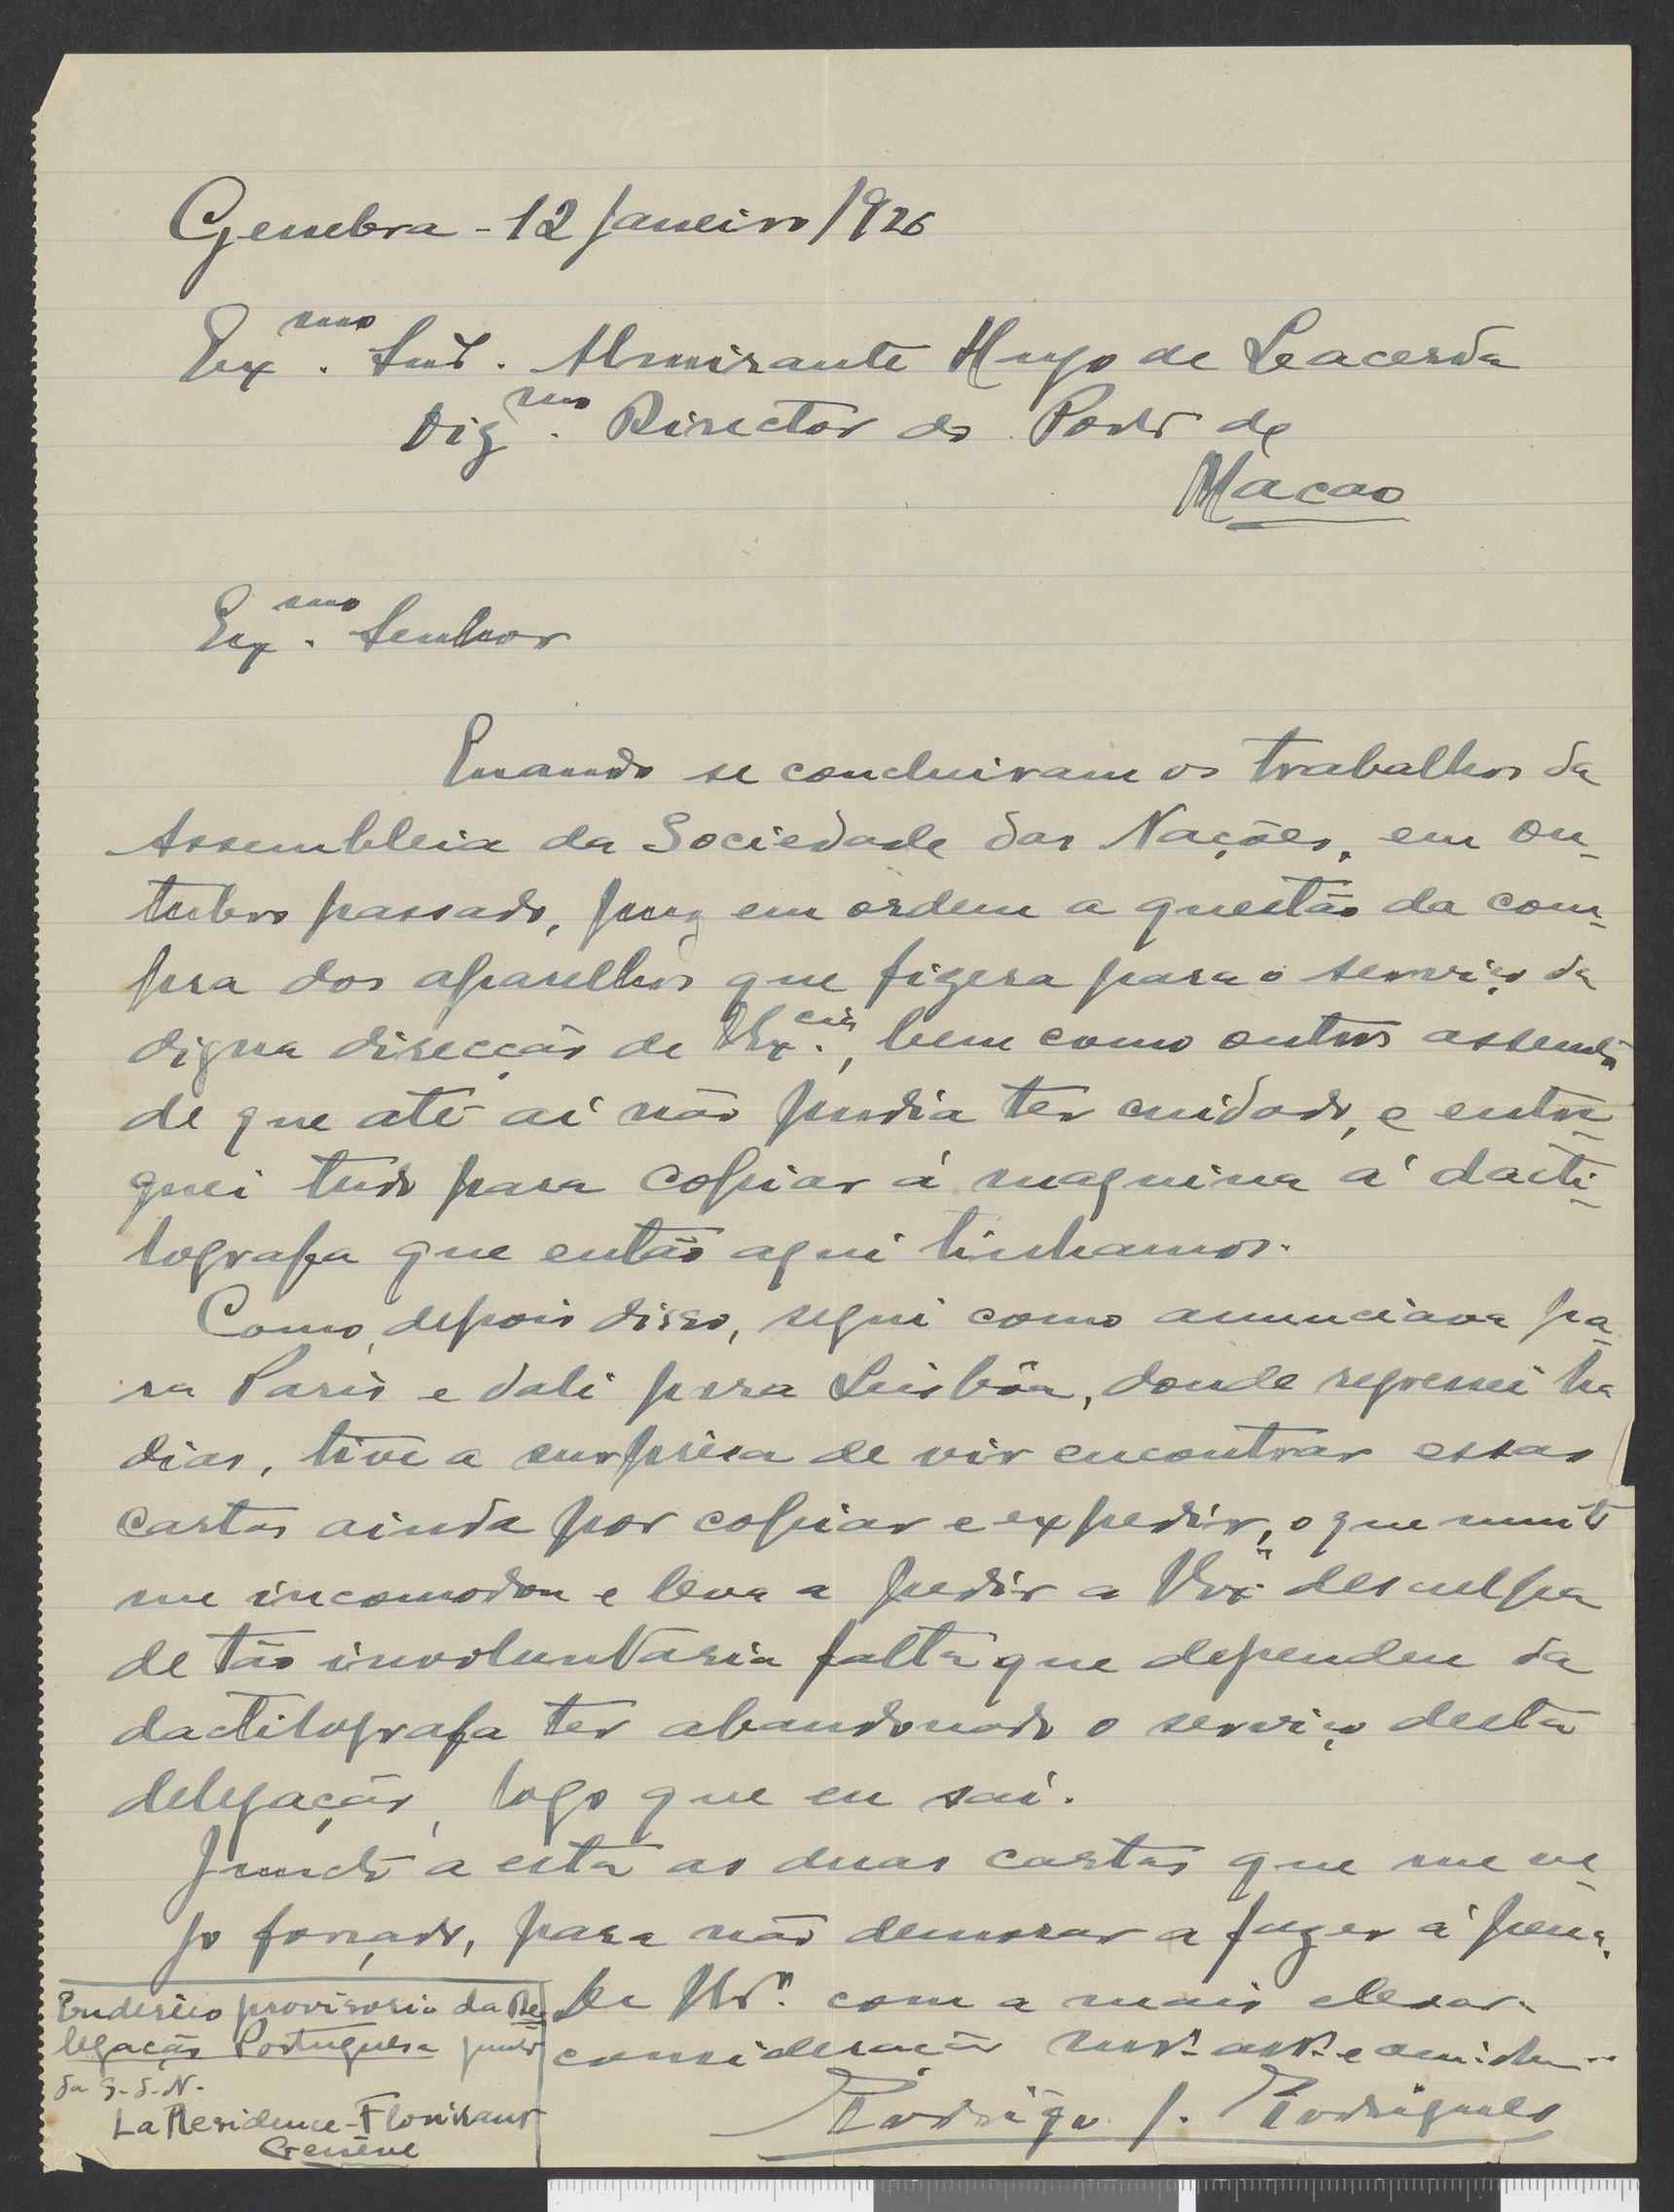 Genebra - 12 Janeiro 1926
Exmo. Snr. Almirante Hugo de Lacerda
Digmo. Director do Porto de
Macao
Exmo. Senhor
Quando se concluiram os trabalhos da
Assembleia da Sociedade das Nações, em ou-
tubro passado, puz em ordem a questão da com-
pra dos aparelhos que fizera para o serviço da
digna direcção de VEx.cia, bem como outros assuntos
de que até aí não pudia ter cuidado, e entre-
guei tudo para copiar á maquina á dacti-
lografa que então aqui tinhamos.
Como, depois disso, segui como anunciava pa-
ra Paris e dali para Lisbôa, donde regressei ha
dias, tive a surprêsa de vir encontrar essas
cartas ainda por copiar e expedir, o que muito
me incomodou e leva a pedir a VEx.ª desculpa
de tão involuntaria falta que dependeu da
dactilografa ter abandonado o serviço desta
delegação, logo que eu saí.
Junto a esta as duas cartas que me ve-
jo forçado, para não demorar a fazer á pena.
De com a mais elevada
consideração
Rodrigo J. Rodrigues
Enderêço provisorio da De-
legação Portuguesa junto
da S. d. N.
La Residence - Florissant
Genève